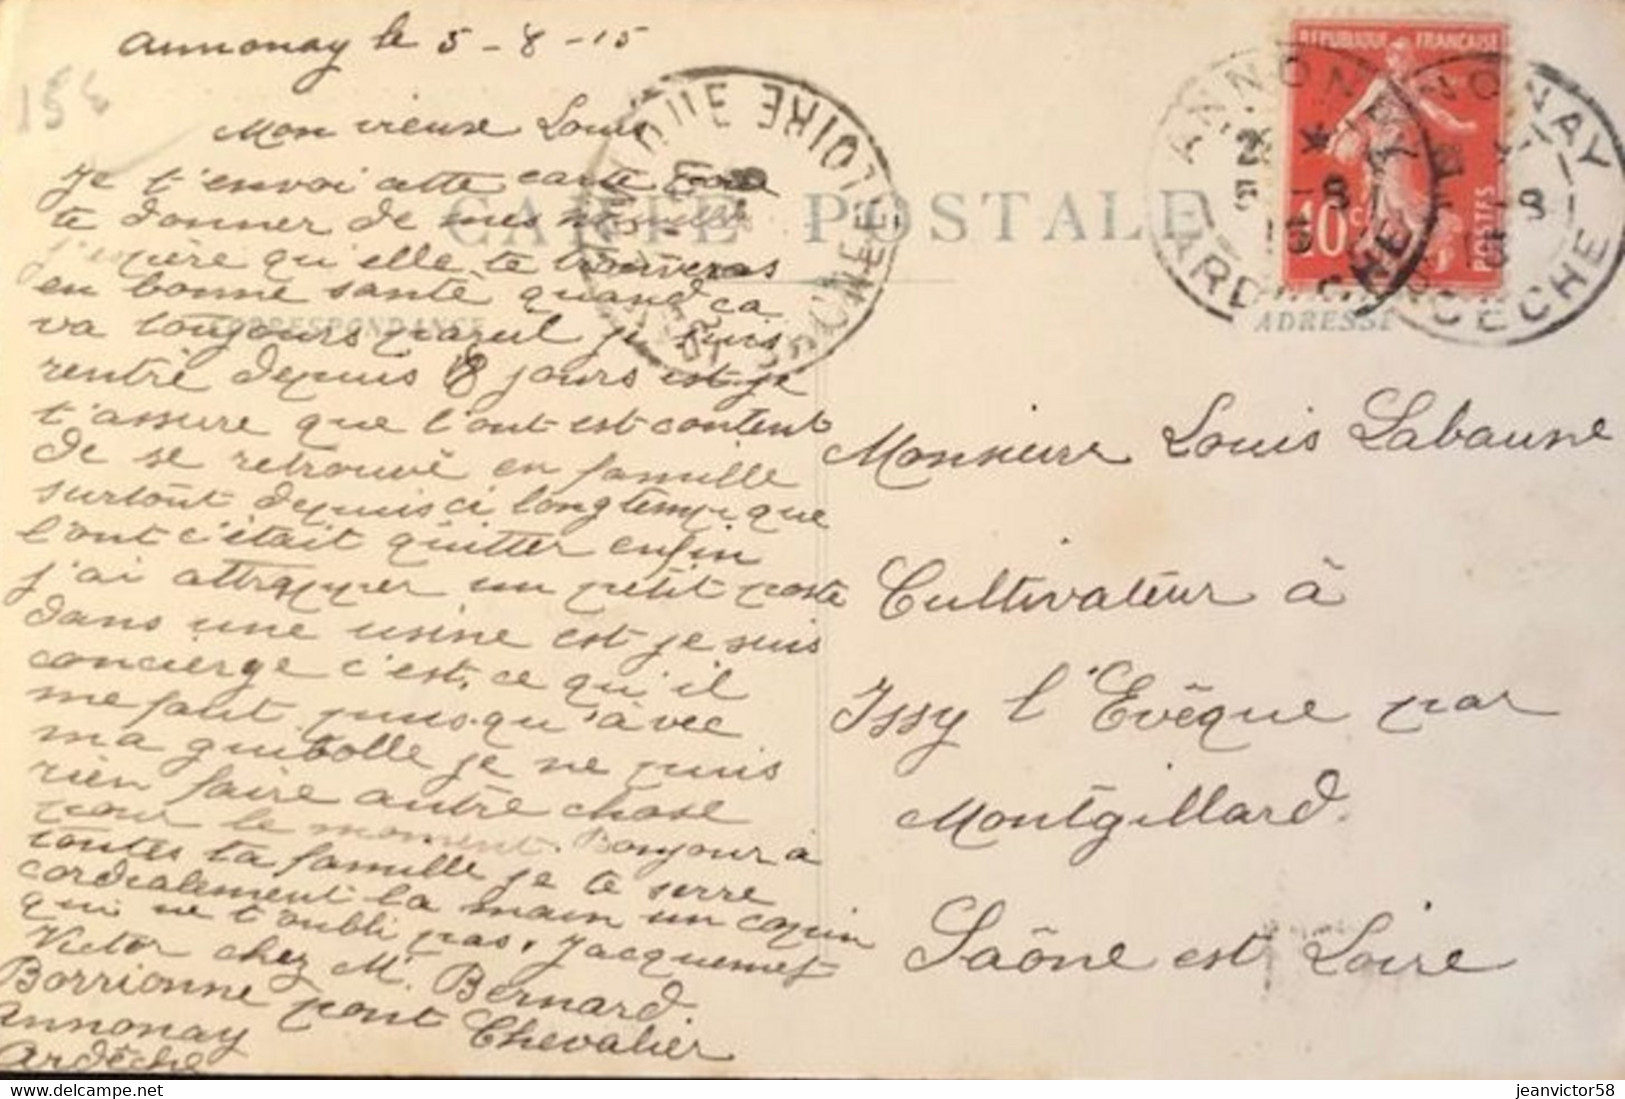 Annonay le 5-8-15
156
Mon vieuse Louis
Je t'envoi cette carte pour
te donner de mes nouvelles
j'espère qu'elle te trouveras
en bonne santé quand ça
va toujours pareil je suis
rentré depuis 8 jours est je
t'assure que l'ont est content
de se retrouvé en famille
surtout depuis ci longtemps que
l'ont c'était quitter enfin
j'ai attrapper un petit poste
dans une usine est je suis
concierge c'est, ce qu'il
me faut puisqu'àvec
ma guibolle je ne puis
rien faire autre chose
pour le moment. Bonjour a
toutes ta famille je te serre
cordialement la main un copin
qui ne t'oubli pas, Jacquemet
Victor chez M. Bernard.
Borrionne pont Chevalier
Annonay
Ardêche
CARTE POSTALE
CORRESPONDANCE
ADRESSE
REPUBLIQUE FRANÇAISE
10c POSTES
ANNONAY
ARDECHE
ANNONAY
ARDECHE
SAONE ET LOIRE
Monsieur Louis Labaune
Cultivateur à
Issy l'Evêque par
Montgillard.
Saône est Loire
jeanvictor58